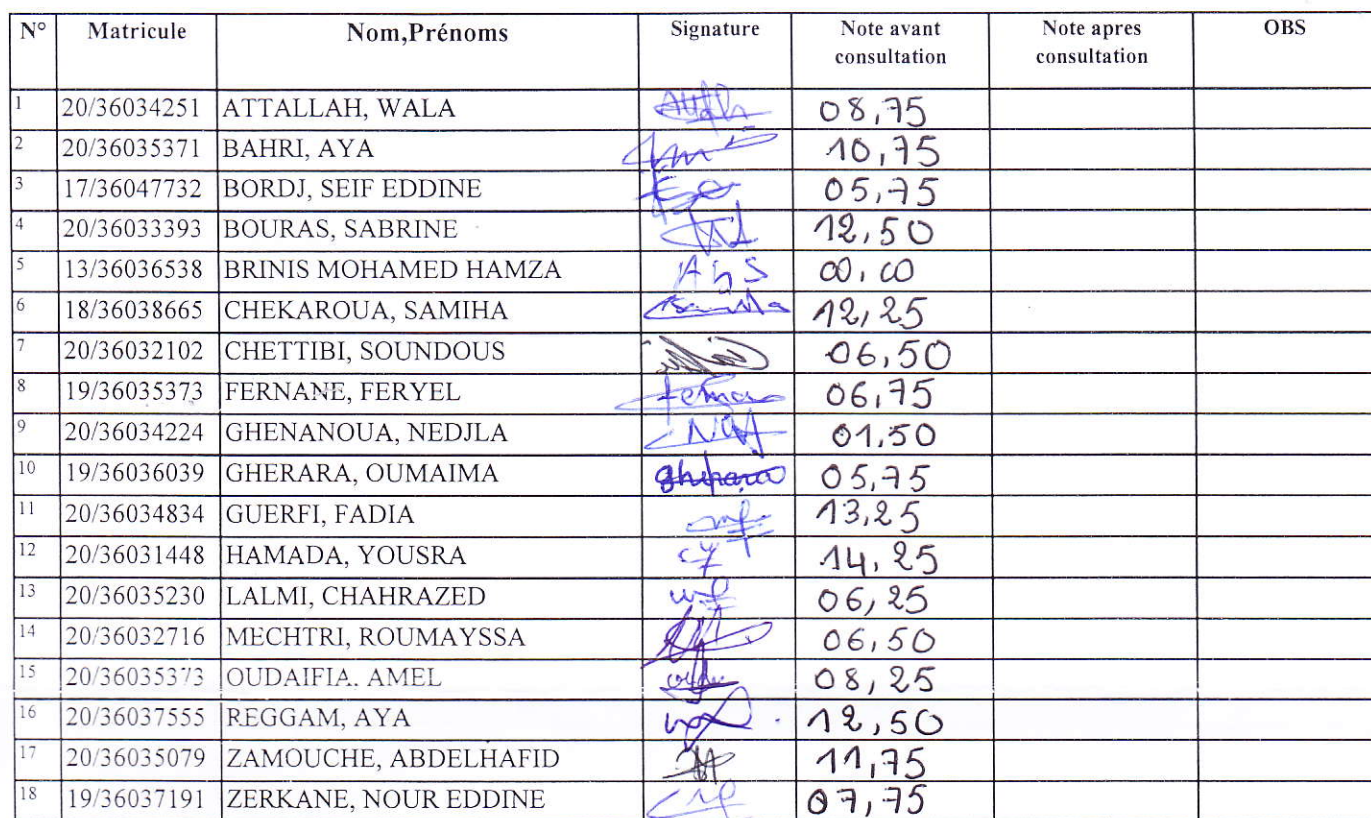 N° Matricule Nom,Prénoms Signature Note avant consultation Note apres consultation OBS
1 20/36034251 ATTALLAH, WALA 08,75
2 20/36035371 BAHRI, AYA 10,75
3 17/36047732 BORDJ, SEIF EDDINE 05,75
4 20/36033393 BOURAS, SABRINE 12,50
5 13/36036538 BRINIS MOHAMED HAMZA Abs 00,00
6 18/36038665 CHEKAROUA, SAMIHA 12,25
7 20/36032102 CHETTIBI, SOUNDOUS 06,50
8 19/36035373 FERNANE, FERYEL 06,75
9 20/36034224 GHENANOUA, NEDJLA 01,50
10 19/36036039 GHERARA, OUMAIMA 05,75
11 20/36034834 GUERFI, FADIA 13,25
12 20/36031448 HAMADA, YOUSRA 14,25
13 20/36035230 LALMI, CHAHRAZED 06,25
14 20/36032716 MECHTRI, ROUMAYSSA 06,50
15 20/36035373 OUDAIFIA, AMEL 08,25
16 20/36037555 REGGAM, AYA 12,50
17 20/36035079 ZAMOUCHE, ABDELHAFID 11,75
18 19/36037191 ZERKANE, NOUR EDDINE 07,75